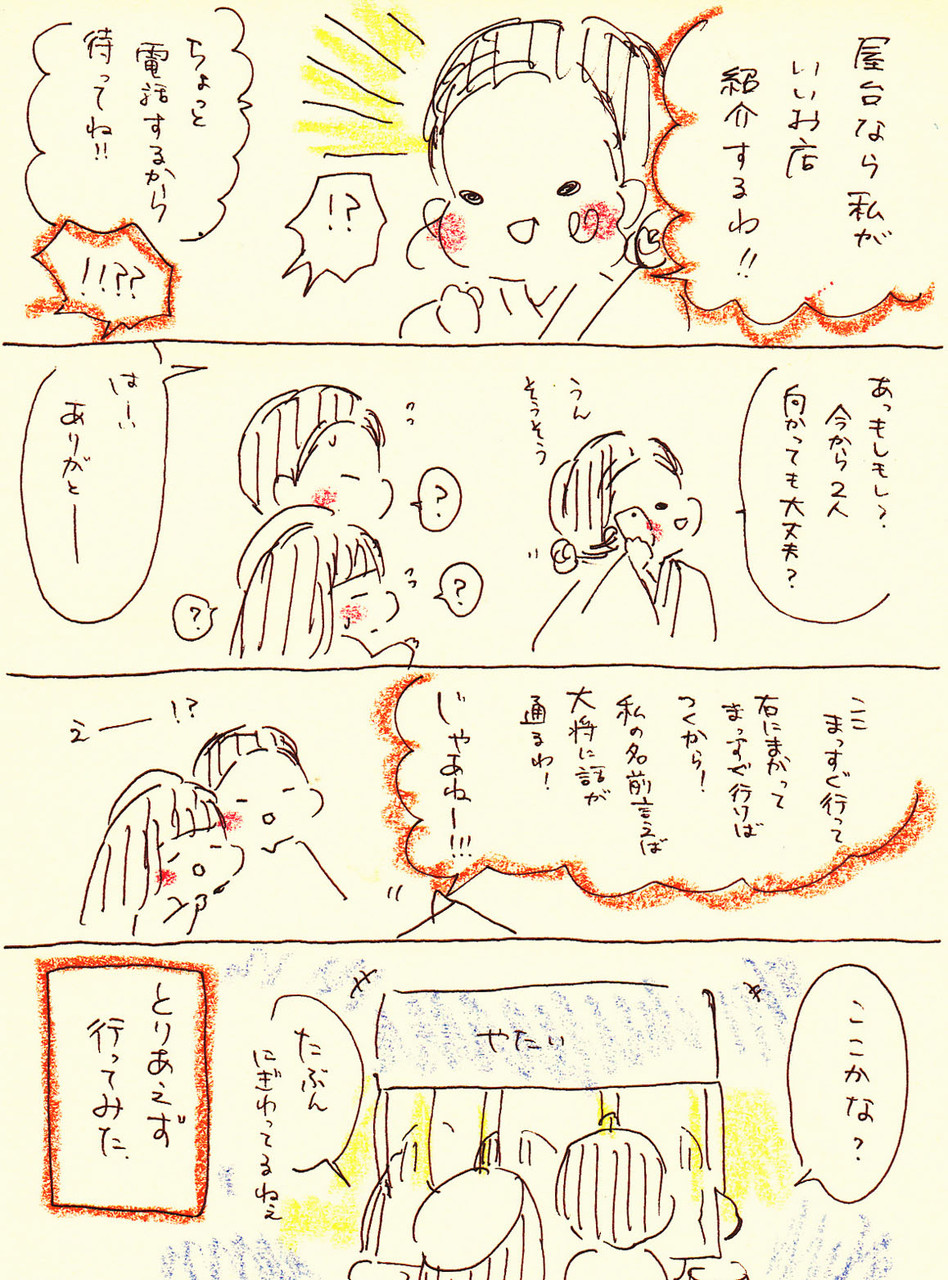 屋台なら私が
いいお店
紹介するわ!!
!?
ちょっと
電話するから
待ってね!!
!!??
あっもしもし?
今から2人
向かっても大丈夫?
うん
そうそう
?
?
?
はーい
ありがとー
ここ
まっすぐ行って
右にまがって
まっすぐ行けば
つくから!
私の名前言えば
大将に話が
通るわ!
じゃあねー!!!
えー!?
ここかな?
やたい
たぶん
にぎわってるねぇ
とりあえず
行ってみた.